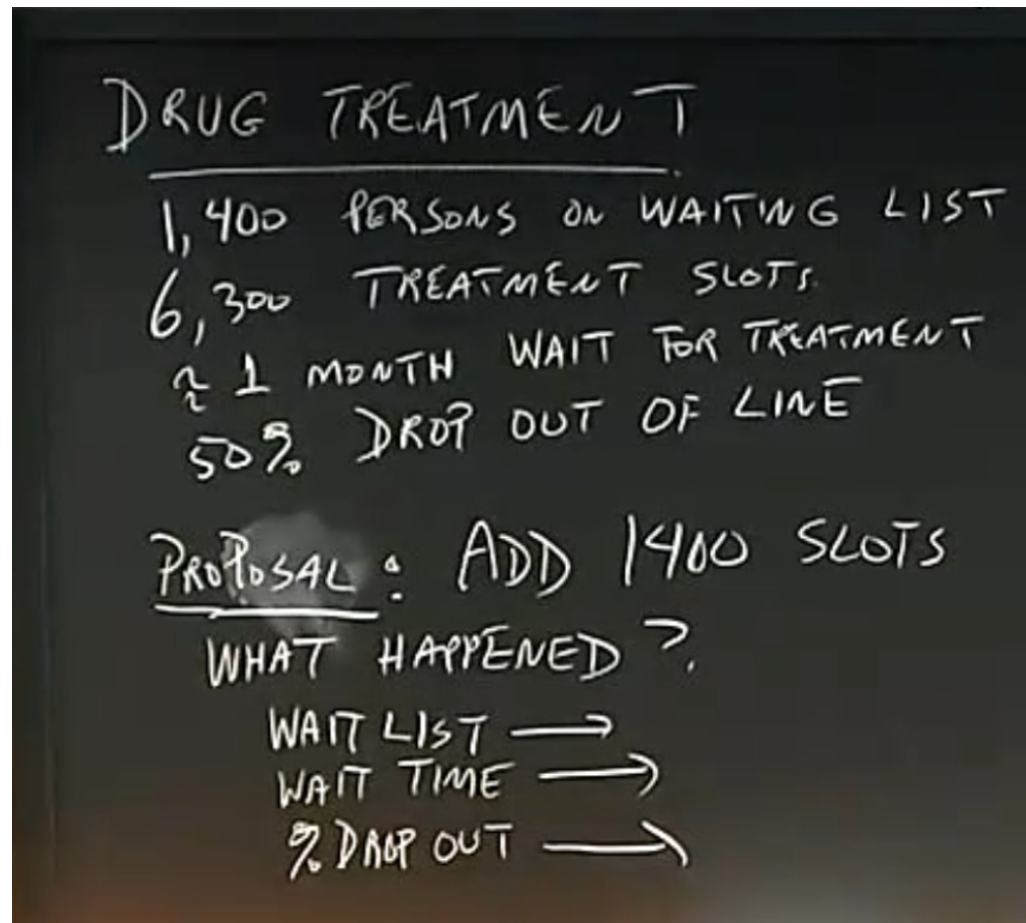 DRUG TREATMENT
1,400 PERSONS ON WAITING LIST
6,300 TREATMENT SLOTS.
≈ 1 MONTH WAIT FOR TREATMENT
50% DROP OUT OF LINE
PROPOSAL: ADD 1400 SLOTS
WHAT HAPPENED?
WAIT LIST →
WAIT TIME →
% DROP OUT →